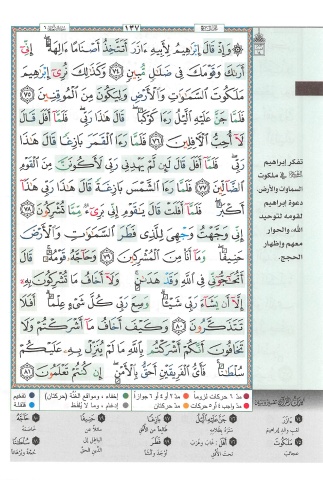 ١٣٧
۞ وَإِذْ قَالَ إِبْرَٰهِيمُ لِأَبِيهِ ءَازَرَ أَتَتَّخِذُ أَصْنَامًا ءَالِهَةً إِنِّىٓ
أَرَىٰكَ وَقَوْمَكَ فِى ضَلَٰلٍ مُّبِينٍ ٧٤ وَكَذَٰلِكَ نُرِىٓ إِبْرَٰهِيمَ
مَلَكُوتَ ٱلسَّمَٰوَٰتِ وَٱلْأَرْضِ وَلِيَكُونَ مِنَ ٱلْمُوقِنِينَ ٧٥
فَلَمَّا جَنَّ عَلَيْهِ ٱلَّيْلُ رَءَا كَوْكَبًا قَالَ هَٰذَا رَبِّى فَلَمَّآ أَفَلَ قَالَ
لَآ أُحِبُّ ٱلْءَافِلِينَ ٧٦ فَلَمَّا رَءَا ٱلْقَمَرَ بَازِغًا قَالَ هَٰذَا
رَبِّى فَلَمَّآ أَفَلَ قَالَ لَئِن لَّمْ يَهْدِنِى رَبِّى لَأَكُونَنَّ مِنَ ٱلْقَوْمِ
ٱلضَّآلِّينَ ٧٧ فَلَمَّا رَءَا ٱلشَّمْسَ بَازِغَةً قَالَ هَٰذَا رَبِّى هَٰذَآ
أَكْبَرُ فَلَمَّآ أَفَلَتْ قَالَ يَٰقَوْمِ إِنِّى بَرِىٓءٌ مِّمَّا تُشْرِكُونَ ٧٨
إِنِّى وَجَّهْتُ وَجْهِىَ لِلَّذِى فَطَرَ ٱلسَّمَٰوَٰتِ وَٱلْأَرْضَ
حَنِيفًا وَمَآ أَنَا۠ مِنَ ٱلْمُشْرِكِينَ ٧٩ وَحَآجَّهُۥ قَوْمُهُۥ قَالَ
أَتُحَٰٓجُّوٓنِّى فِى ٱللَّهِ وَقَدْ هَدَىٰنِ وَلَآ أَخَافُ مَا تُشْرِكُونَ بِهِۦٓ
إِلَّآ أَن يَشَآءَ رَبِّى شَيْـًٔا وَسِعَ رَبِّى كُلَّ شَىْءٍ عِلْمًا أَفَلَا
تَتَذَكَّرُونَ ٨٠ وَكَيْفَ أَخَافُ مَآ أَشْرَكْتُمْ وَلَا
تَخَافُونَ أَنَّكُمْ أَشْرَكْتُم بِٱللَّهِ مَا لَمْ يُنَزِّلْ بِهِۦ عَلَيْكُمْ
سُلْطَٰنًا فَأَىُّ ٱلْفَرِيقَيْنِ أَحَقُّ بِٱلْأَمْنِ إِن كُنتُمْ تَعْلَمُونَ ٨١
تفكر إبراهيم
في ملكوت
السماوات والأرض.
دعوة إبراهيم
لقومه لتوحيد
الله، والحوار
معهم وإظهار
الحجج.
مدّ ٦ حركات لزوماً مدّ٢ أو٤ أو٦ جوازاً إخفاء، ومواقع الغُنَّة (حركتان) تفخيم
مدّ حركتان إدغام، وما لا يُلفَظ قلقلة